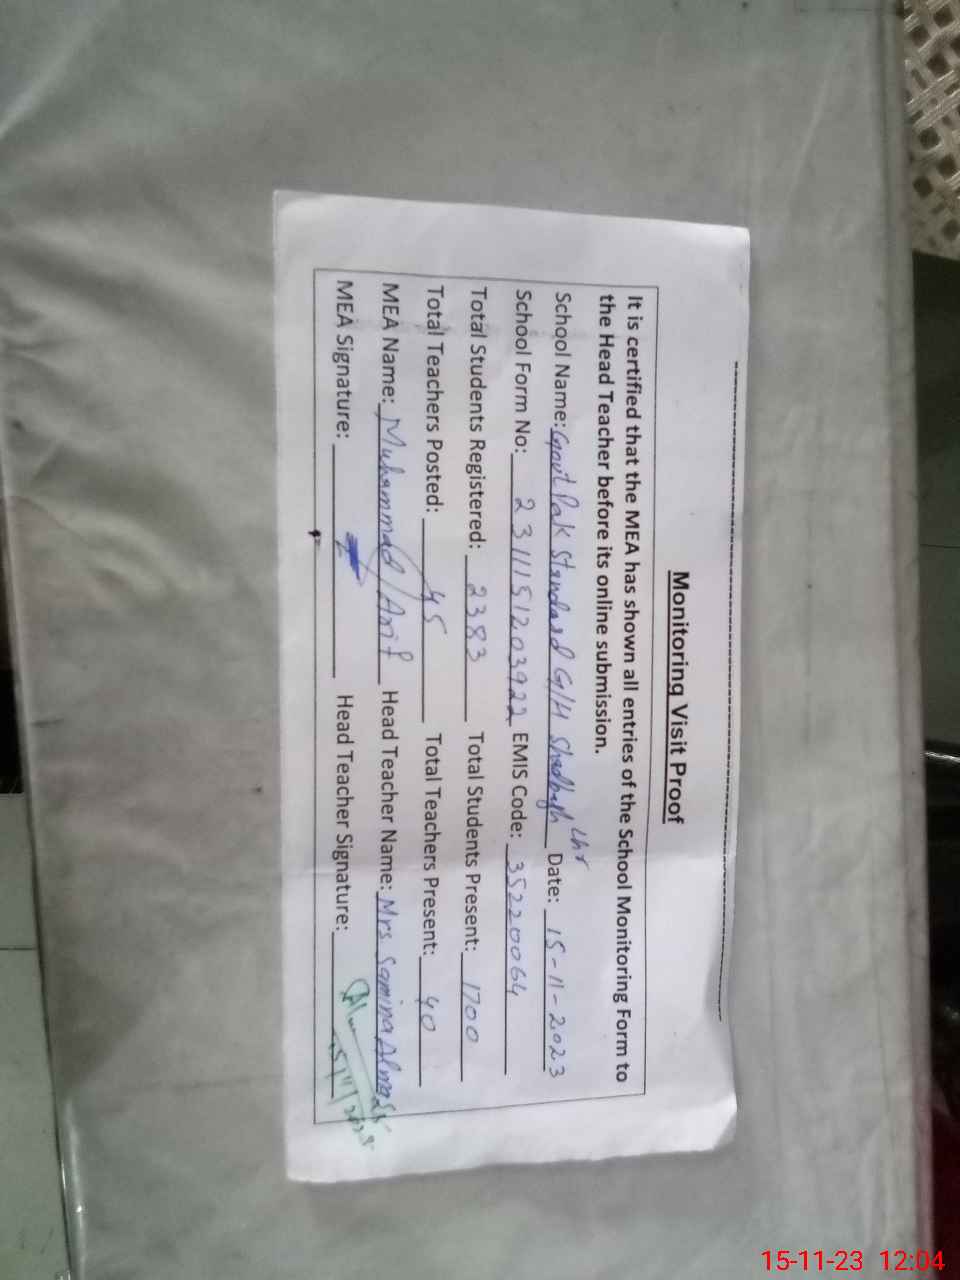 Monitoring Visit Proof
It is certified that the MEA has shown all entries of the School Monitoring Form to
the Head Teacher before its online submission.
School Name: Govt Pak Standard G/H Shadbagh Lhr Date: 15-11-2023
School Form No: 2311151203922 EMIS Code: 35220064
Total Students Registered: 2383 Total Students Present: 1700
Total Teachers Posted: 45 Total Teachers Present: 40
MEA Name: Muhammad Arif Head Teacher Name: Mrs Samina Almas
MEA Signature: Head Teacher Signature:
15/11/2023
15-11-23 12:04